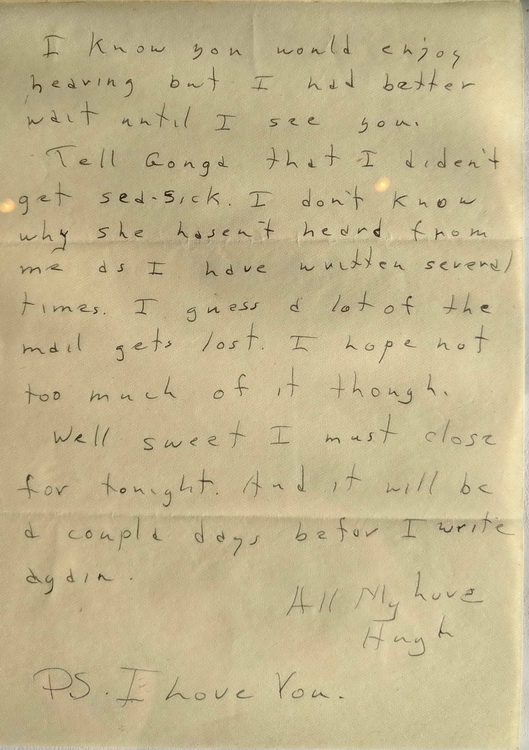 I know you would enjoy
hearing but I had better
wait until I see you.
Tell Gonga that I diden't
get sea-sick. I don't know
why she hasen't heard from
me as I have written several
times. I guess a lot of the
mail gets lost. I hope not
too much of it though.
Well sweet I must close
for tonight. And it will be
a coupla days befor I write
again.
All My Love
Hugh
PS. I Love You.